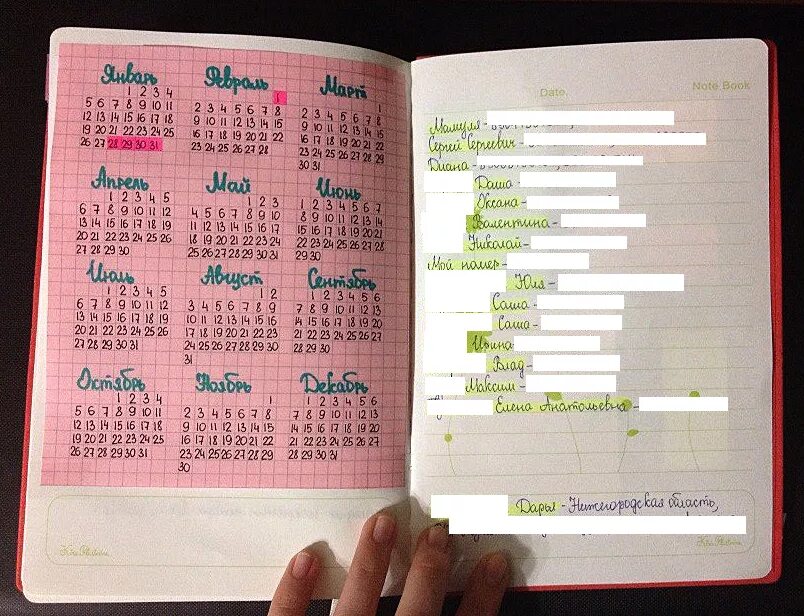 Январь
1 2 3 4
5 6 7 8 9 10 11
12 13 14 15 16 17 18
19 20 21 22 23 24 25
26 27 28 29 30 31
Февраль
1
2 3 4 5 6 7 8
9 10 11 12 13 14 15
16 17 18 19 20 21 22
23 24 25 26 27 28
Март
1
2 3 4 5 6 7 8
9 10 11 12 13 14 15
16 17 18 19 20 21 22
23 24 25 26 27 28 29
30 31
Апрель
1 2 3 4 5
6 7 8 9 10 11 12
13 14 15 16 17 18 19
20 21 22 23 24 25 26
27 28 29 30
Май
1 2 3
4 5 6 7 8 9 10
11 12 13 14 15 16 17
18 19 20 21 22 23 24
25 26 27 28 29 30 31
Июнь
1 2 3 4 5 6 7
8 9 10 11 12 13 14
15 16 17 18 19 20 21
22 23 24 25 26 27 28
29 30
Июль
1 2 3 4 5
6 7 8 9 10 11 12
13 14 15 16 17 18 19
20 21 22 23 24 25 26
27 28 29 30 31
Август
1 2
3 4 5 6 7 8 9
10 11 12 13 14 15 16
17 18 19 20 21 22 23
24 25 26 27 28 29 30
31
Сентябрь
1 2 3 4 5 6
7 8 9 10 11 12 13
14 15 16 17 18 19 20
21 22 23 24 25 26 27
28 29 30
Октябрь
1 2 3 4
5 6 7 8 9 10 11
12 13 14 15 16 17 18
19 20 21 22 23 24 25
26 27 28 29 30 31
Ноябрь
1
2 3 4 5 6 7 8
9 10 11 12 13 14 15
16 17 18 19 20 21 22
23 24 25 26 27 28 29
30
Декабрь
1 2 3 4 5 6
7 8 9 10 11 12 13
14 15 16 17 18 19 20
21 22 23 24 25 26 27
28 29 30 31
Date. Note Book
Мамуля -
Сергей Сергеевич -
Диана -
Даша -
Оксана -
Валентина -
Николай -
Мой номер -
Юля -
Саша -
Саша -
Ирина
Влад -
Максим -
Елена Анатольевна -
Дарья - Нижегородская область,